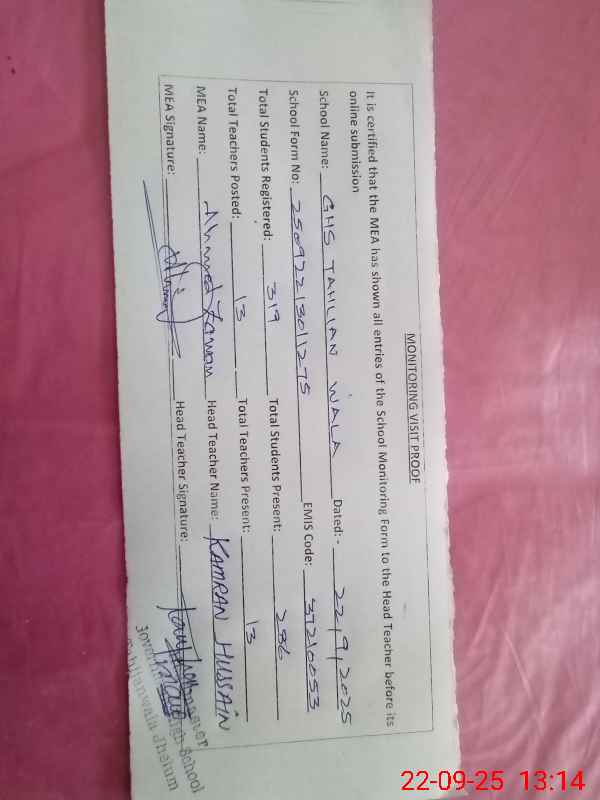 MONITORING VISIT PROOF
It is certified that the MEA has shown all entries of the School Monitoring Form to the Head Teacher before its
online submission
School Name: GHS TAHLIAN WALA Dated:- 22/9/2025
School Form No: EMIS Code: 37210053
Total Students Registered: 319 Total Students Present: 286
Total Teachers Posted: 13 Total Teachers Present: 13
MEA Name: Ahmed Head Teacher Name: KAMRAN HUSSAIN
MEA Signature: Head Teacher Signature:
High School
Jhelum
22-09-25 13:14